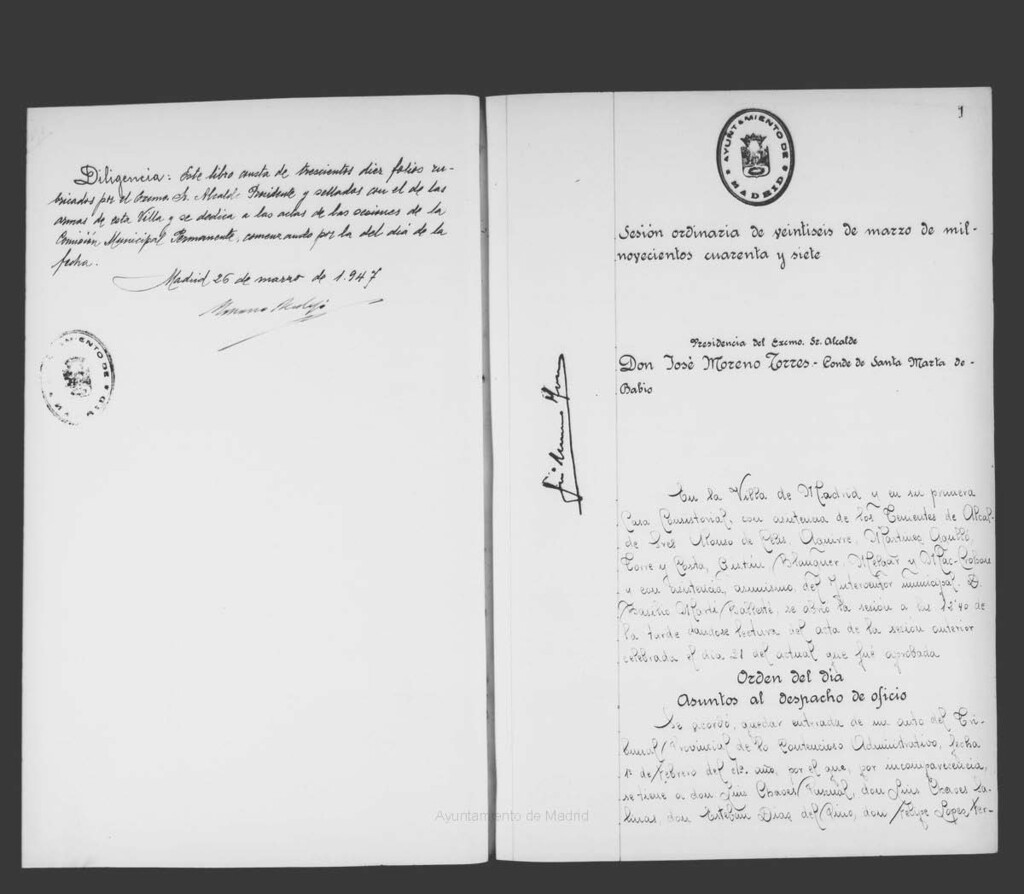 Diligencia: Este libro consta de trescientos diez folios ru-
bricados por el Excmo. Sr. Alcalde Presidente y sellados con el de las
armas de esta Villa y se dedica a las actas de las sesiones de la
Comisión Municipal Permanente, comenzando por la del día de la
fecha.
Madrid 26 de marzo de 1.947
AYUNTAMIENTO DE MADRID
1
AYUNTAMIENTO DE MADRID
Sesión ordinaria de veintiseis de marzo de mil-
novecientos cuarenta y siete
Presidencia del Excmo. Sr. Alcalde
Don José Moreno Torres - Conde de Santa Marta de -
Babio
En la Villa de Madrid y en su primera
Casa Consistorial, con asistencia de los Tenientes de Alcal-
de Sres Alonso de Celis, Aguirre, Martinez Agulló,
Torre y Costa, Gistau, Blanquer, Melgar y Mac-Crohon
y con asistencia, asimismo, del Interventor municipal D.
Basilio Martí Ballesté, se abrió la sesión a las 12'40 de
la tarde dandose lectura del acta de la sesión anterior
celebrada el día 21 del actual que fué aprobada
Orden del día
Asuntos al despacho de oficio
Se acordó, quedar enterada de un auto del Tri-
bunal Provincial de lo Contencioso Administrativo, fecha
1º de Febrero del cte. año, por el que, por incomparecencia,
se tiene a don Luis Chaves Pascual, don Luis Chaves Sa-
linas, don Esteban Diaz del Pino, don Felipe Lopez Fer-
Ayuntamiento de Madrid